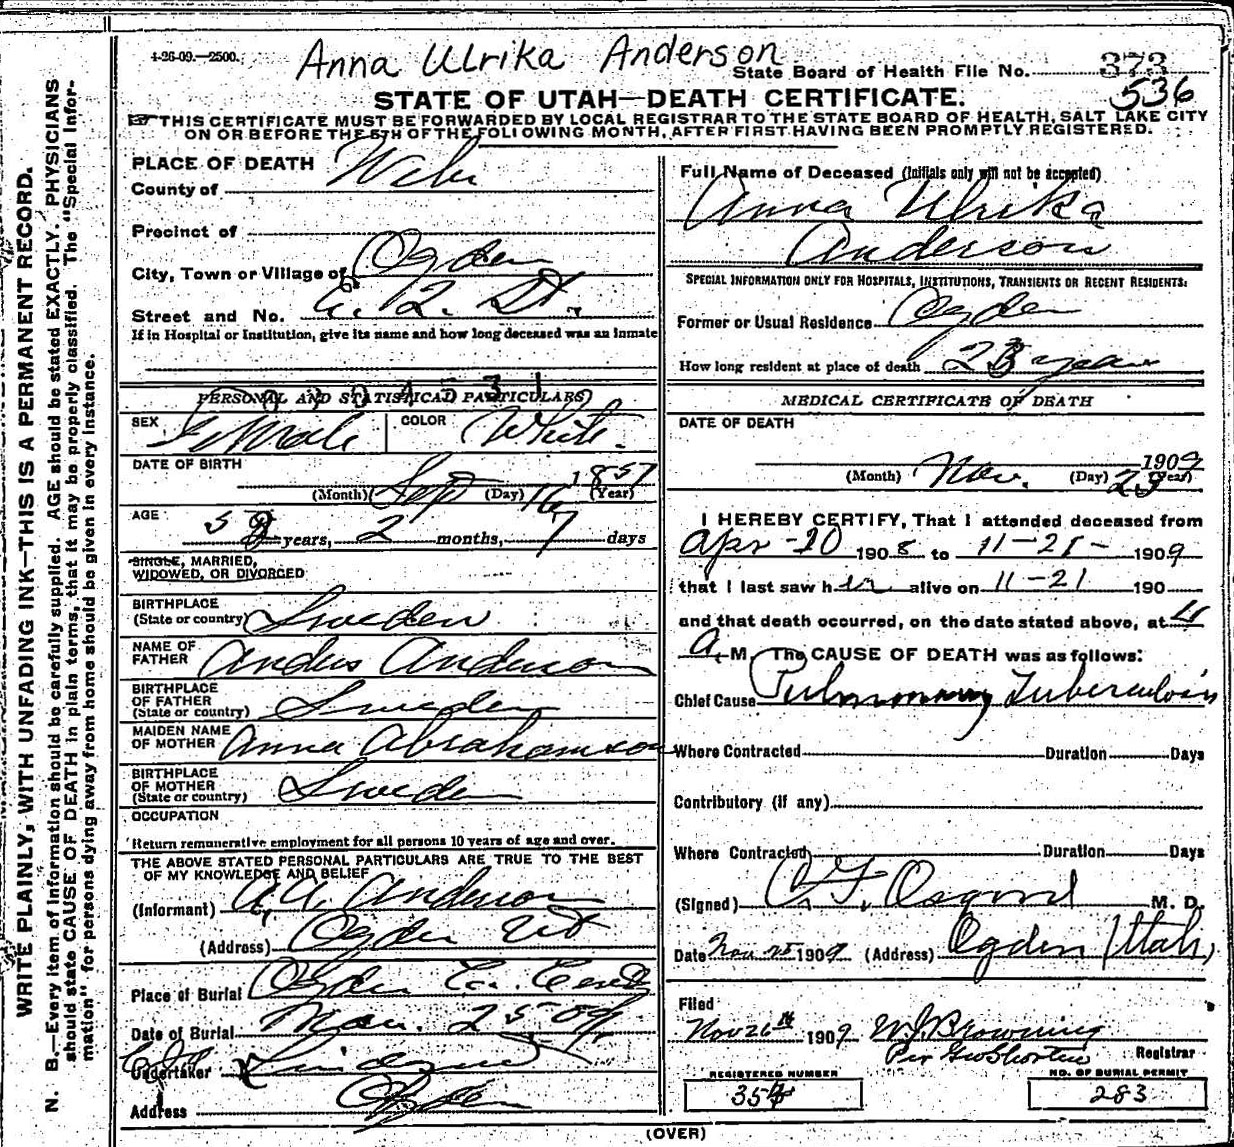 4-26-09.—2500.
Anna Ulrika Anderson
State Board of Health File No. 373
536
STATE OF UTAH—DEATH CERTIFICATE.
THIS CERTIFICATE MUST BE FORWARDED BY LOCAL REGISTRAR TO THE STATE BOARD OF HEALTH, SALT LAKE CITY
ON OR BEFORE THE 5TH OF THE FOLLOWING MONTH, AFTER FIRST HAVING BEEN PROMPTLY REGISTERED.
WRITE PLAINLY, WITH UNFADING INK—THIS IS A PERMANENT RECORD.
N. B.—Every item of information should be carefully supplied. AGE should be stated EXACTLY. PHYSICIANS
should state CAUSE OF DEATH in plain terms, that it may be properly classified. The "Special Infor-
mation" for persons dying away from home should be given in every instance.
PLACE OF DEATH
County of Weber
Precinct of
City, Town or Village of Ogden
Street and No. 2. St.
If in Hospital or Institution, give its name and how long deceased was an inmate
PERSONAL AND STATISTICAL PARTICULARS
SEX Female COLOR White.
DATE OF BIRTH
(Month) Sept (Day) 16 1857 (Year)
AGE
52 years, 2 months, 7 days
SINGLE, MARRIED,
WIDOWED, OR DIVORCED
BIRTHPLACE
(State or country) Sweden
NAME OF
FATHER Andus Anderson
BIRTHPLACE
OF FATHER
(State or country) Sweden
MAIDEN NAME
OF MOTHER Anna Abrahamson
BIRTHPLACE
OF MOTHER
(State or country) Sweden
OCCUPATION
Return remunerative employment for all persons 10 years of age and over.
THE ABOVE STATED PERSONAL PARTICULARS ARE TRUE TO THE BEST
OF MY KNOWLEDGE AND BELIEF
(Informant) A. A. Anderson
(Address) Ogden Ut
Place of Burial Ogden
Date of Burial Nov. 25 09
Undertaker
Address Ogden
Full Name of Deceased (Initials only will not be accepted)
Anna Ulrika
Anderson
SPECIAL INFORMATION ONLY FOR HOSPITALS, INSTITUTIONS, TRANSIENTS OR RECENT RESIDENTS:
Former or Usual Residence Ogden
How long resident at place of death 23 years
MEDICAL CERTIFICATE OF DEATH
DATE OF DEATH
(Month) Nov. (Day) 23 1909 (Year)
I HEREBY CERTIFY, That I attended deceased from
Apr-20 1908 to 11-21- 1909
that I last saw her alive on 11-21 190
and that death occurred, on the date stated above, at
A. M. The CAUSE OF DEATH was as follows:
Chief Cause Pulmonary Tuberculosis
Where Contracted Duration Days
Contributory (if any)
Where Contracted Duration Days
(Signed) C. F. Osgood M. D.
Date Nov 25 1909 (Address) Ogden Utah,
Filed
Nov 26th 1909 W J Browning
Per Geo Shorten Registrar
REGISTERED NUMBER
354
NO. OF BURIAL PERMIT
283
(OVER)